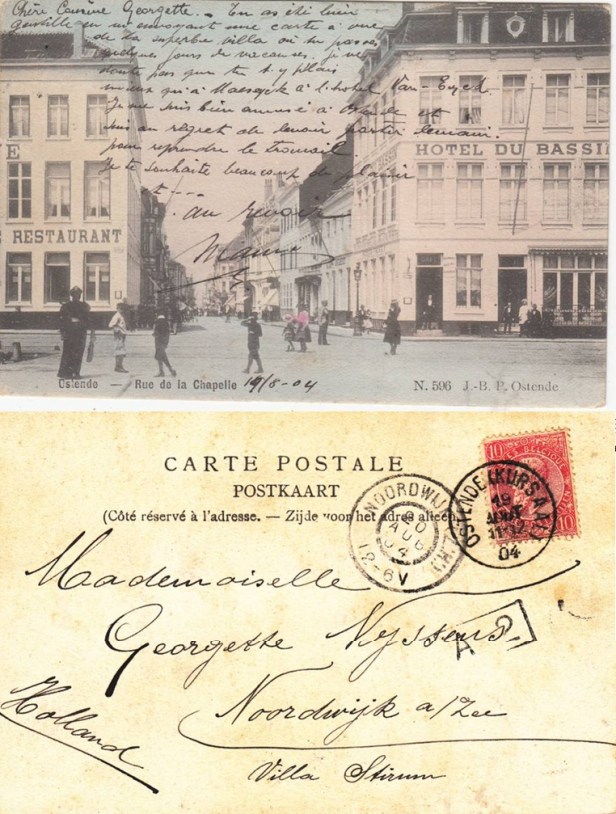 Chère Cousine Georgette. - Tu as été bien
gentille en m'envoyant une carte à vue
de la superbe villa où tu passes
quelques jours de vacances. je ne
doute pas que tu t'y plais
mieux qu'à Maeseyck à l'hôtel Van-Eyck.
Je me suis bien amusé à Ostende et
suis au regret de devoir partir demain.
pour reprendre le travail.
Je te souhaite beaucoup de plaisir
et ---
au revoir
E RESTAURANT
HOTEL DU BASSIN
Ostende — Rue de la Chapelle 19/8-04 N. 596 J.-B. P. Ostende
CARTE POSTALE
POSTKAART
(Côté réservé à l'adresse. — Zijde voor het adres alleen.)
10 10
NOORDWIJK
20
AUG
04
12-6V
OSTENDE (KURSAAL)
19
AOUT
11-12
04
Mademoiselle
Georgette Nyssens.
Noordwijk a/Zee
Holland
Villa Stirum